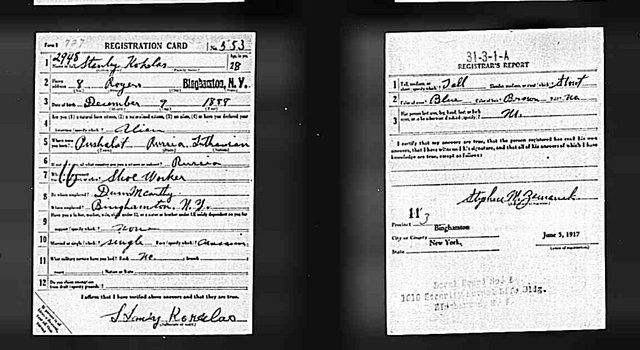 Form 1 737 REGISTRATION CARD No. 553
1 2948 Stanly Age, in yrs. 28
2 Home address 8 Rogers Binghamton, N. Y.
3 Date of birth December 9 1888
4 Are you (1) a natural born citizen, (2) a naturalized citizen, (3) an alien, (4) or have you declared your
intention (specify which)? Alien
5 Where were you born? Russia Lithuanian
6 of what country are you a citizen or subject? Russia
7 Shoe Worker
8 By whom employed? Dunn McCarthy
Where employed? Binghamton. N. Y.
9 Have you a father, mother, wife, child under 12, or a sister or brother under 12, solely dependent on you for
support (specify which)? none
10 Married or single (which)? single Race (specify which)?
11 What military service have you had? Rank No branch
years Nation or State
12 Do you claim exemption from draft (specify grounds)?
I affirm that I have verified above answers and that they are true.
31-3-1-A
REGISTRAR'S REPORT
1 Tall, medium, or short (specify which)? Tall Slender, medium, or stout (which)? Stout
2 Color of eyes? Blue Color of hair? Brown Bald? No
3 Has person lost arm, leg, hand, foot, or both
eyes, or is he otherwise disabled (specify)?
I certify that my answers are true, that the person registered has read his own
answers, that I have witnessed his signature, and that all of his answers of which I have
knowledge are true, except as follows:
Stephen M.
Precinct 11 3
City or County Binghamton
State New York, June 5, 1917
(Date of registration)
Local Board No. 1
1010 Security Mutual Life Bldg.
Binghamton, N.Y.